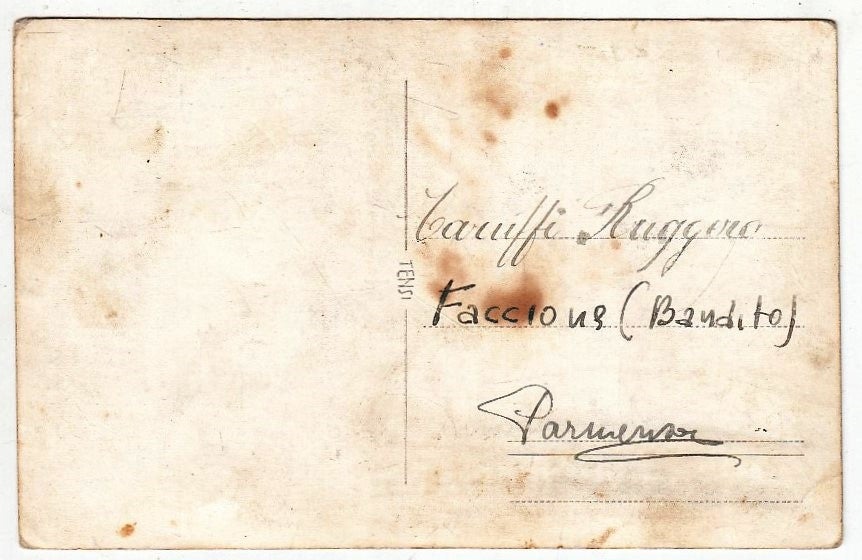 TENSI
Taruffi Ruggero
Faccione (Bandito)
Parmense